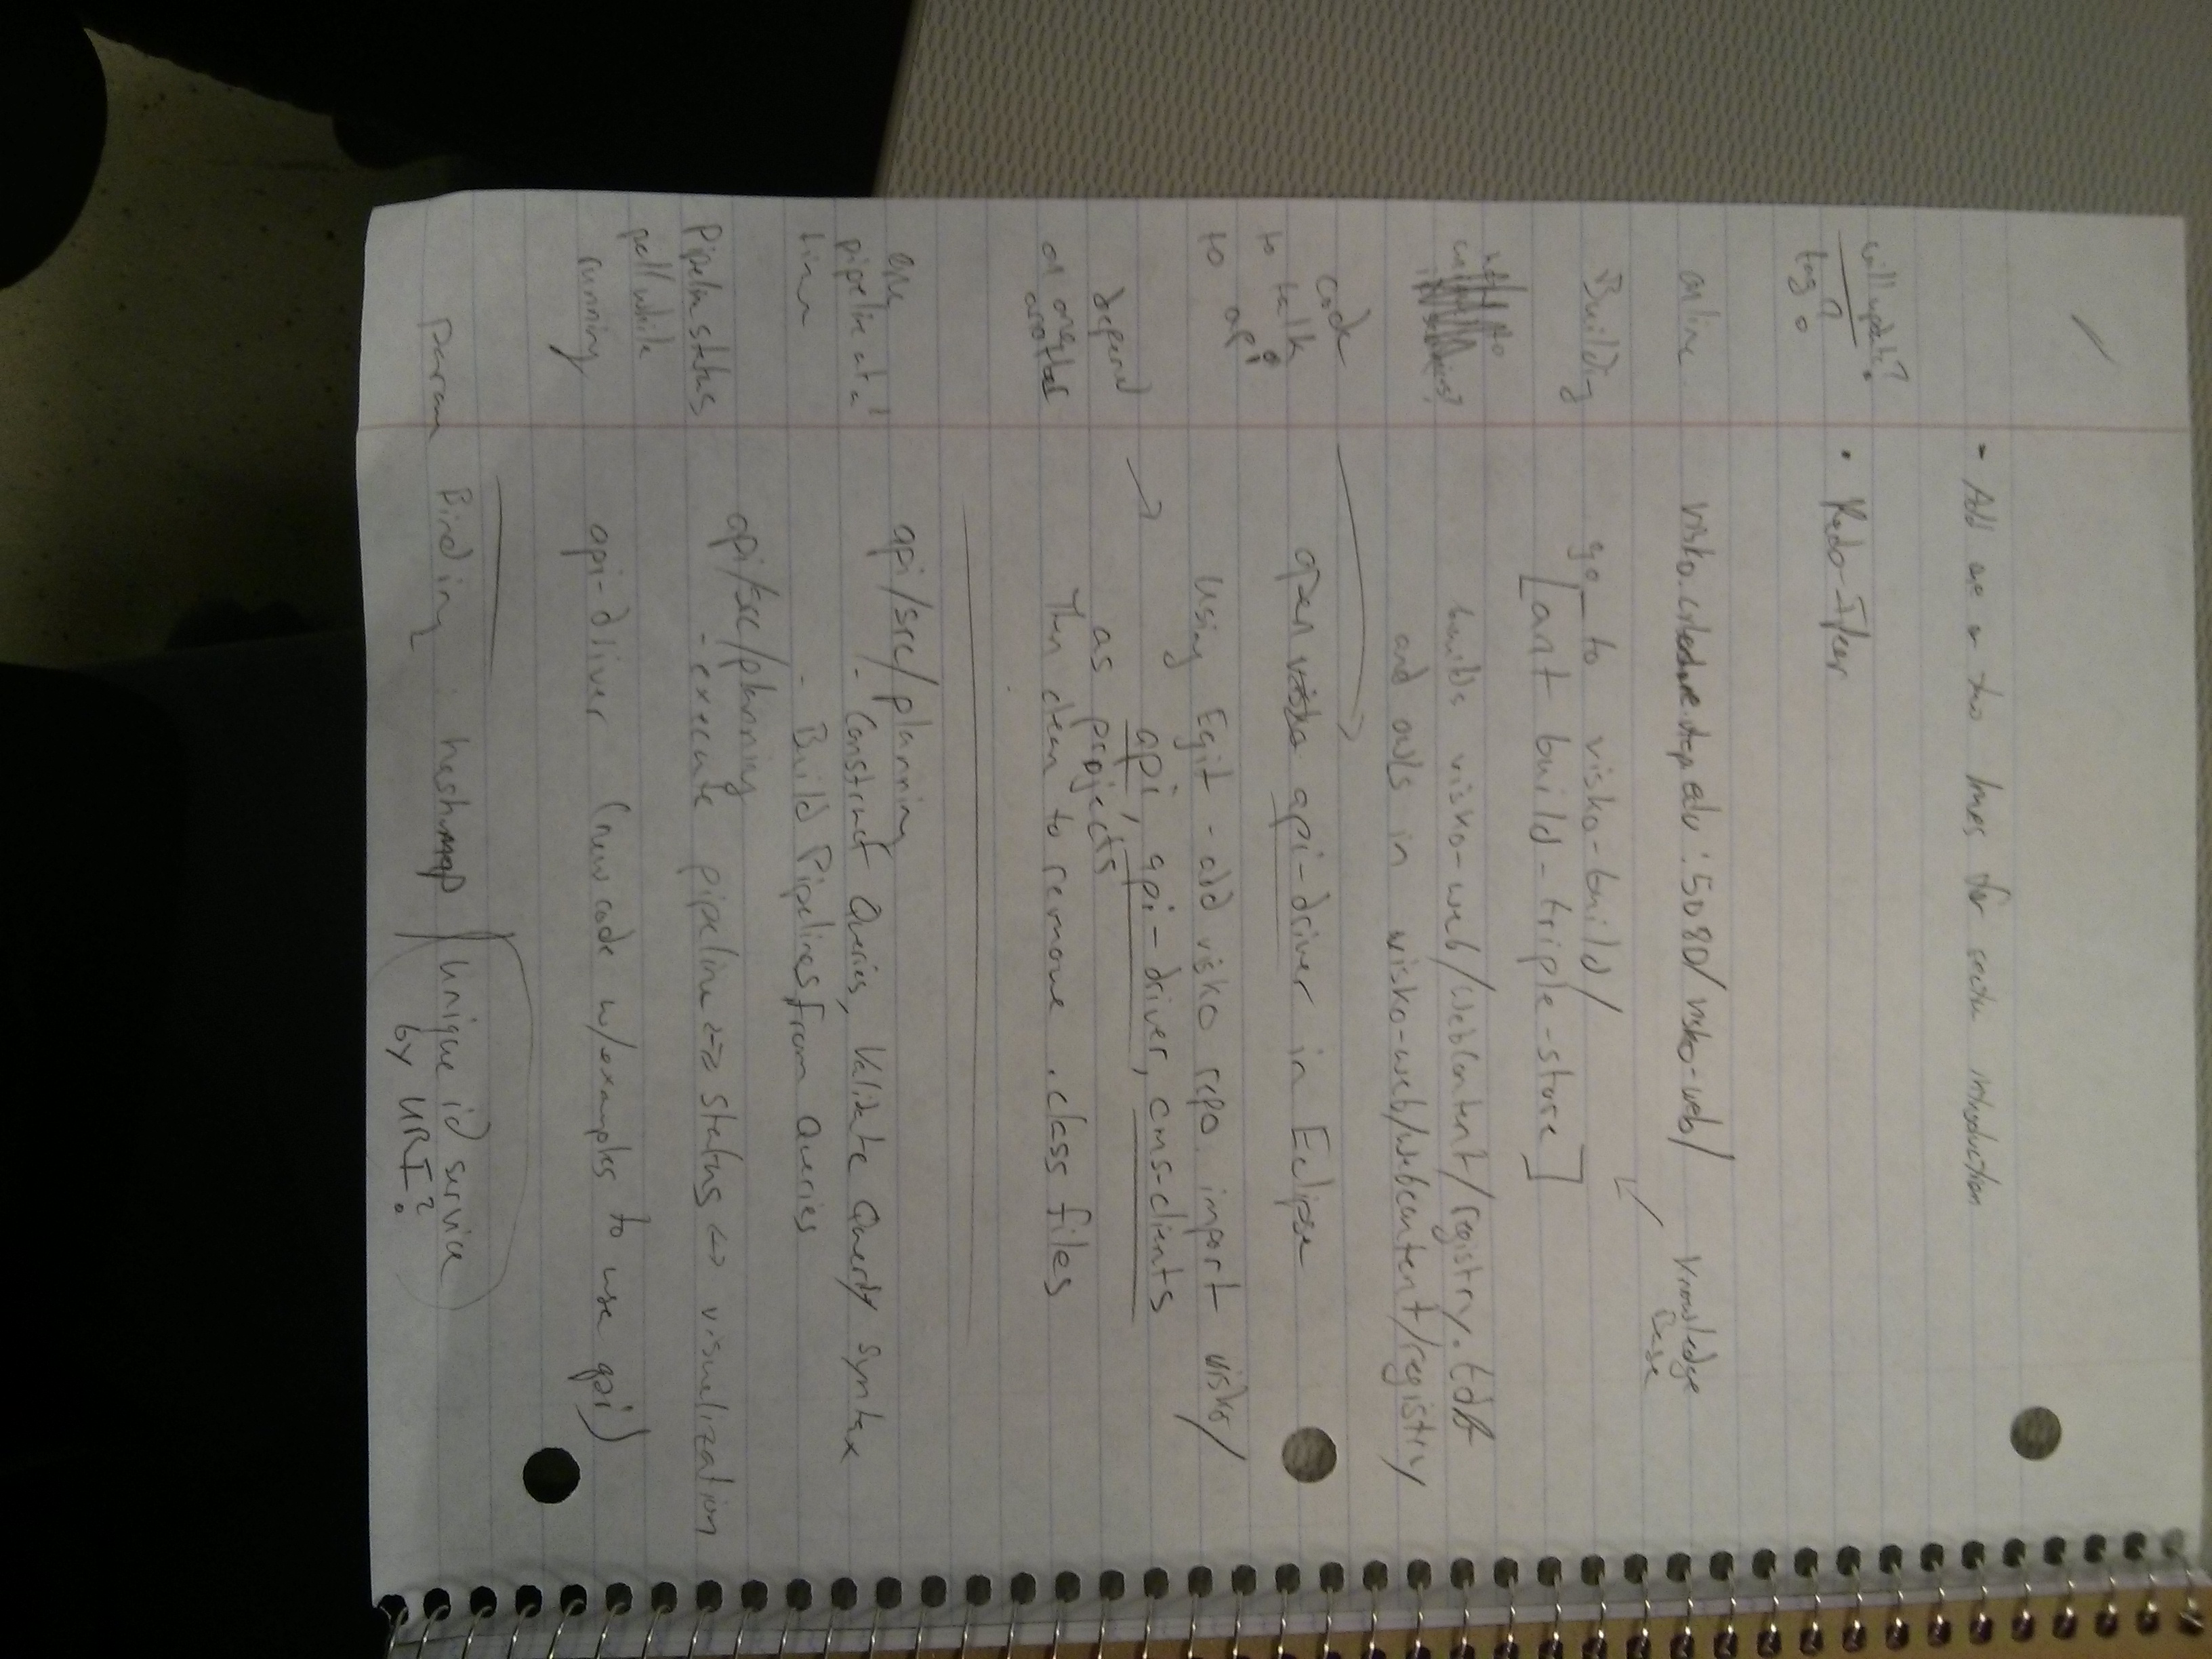 - Add one or two lines for section introduction
will update?
tag?
online visko.cybershare.utep.edu:5080/visko-web/
Knowledge
Base
Building go to visko-build/
[ant build-triple-store]
builds visko-web/WebContent/registry.tdb
and owls in visko-web/webcontent/registry
code
to talk
to api
open visko api-driver in Eclipse
Using Egit - add visko repo. import visko/
api, api-driver, cms-clients
as projects
depend
on one
another
Then clean to remove .class files
one
pipeline at a
time
api/src/planning
- Construct Queries, Validate Query Syntax
- Build Pipelines From Queries
api/src/planning
- execute pipeline <-> status <-> visualization
Pipeline status
poll while
running
api-driver (new code w/examples to use api)
param Binding : hashmap
unique id service
by URI?